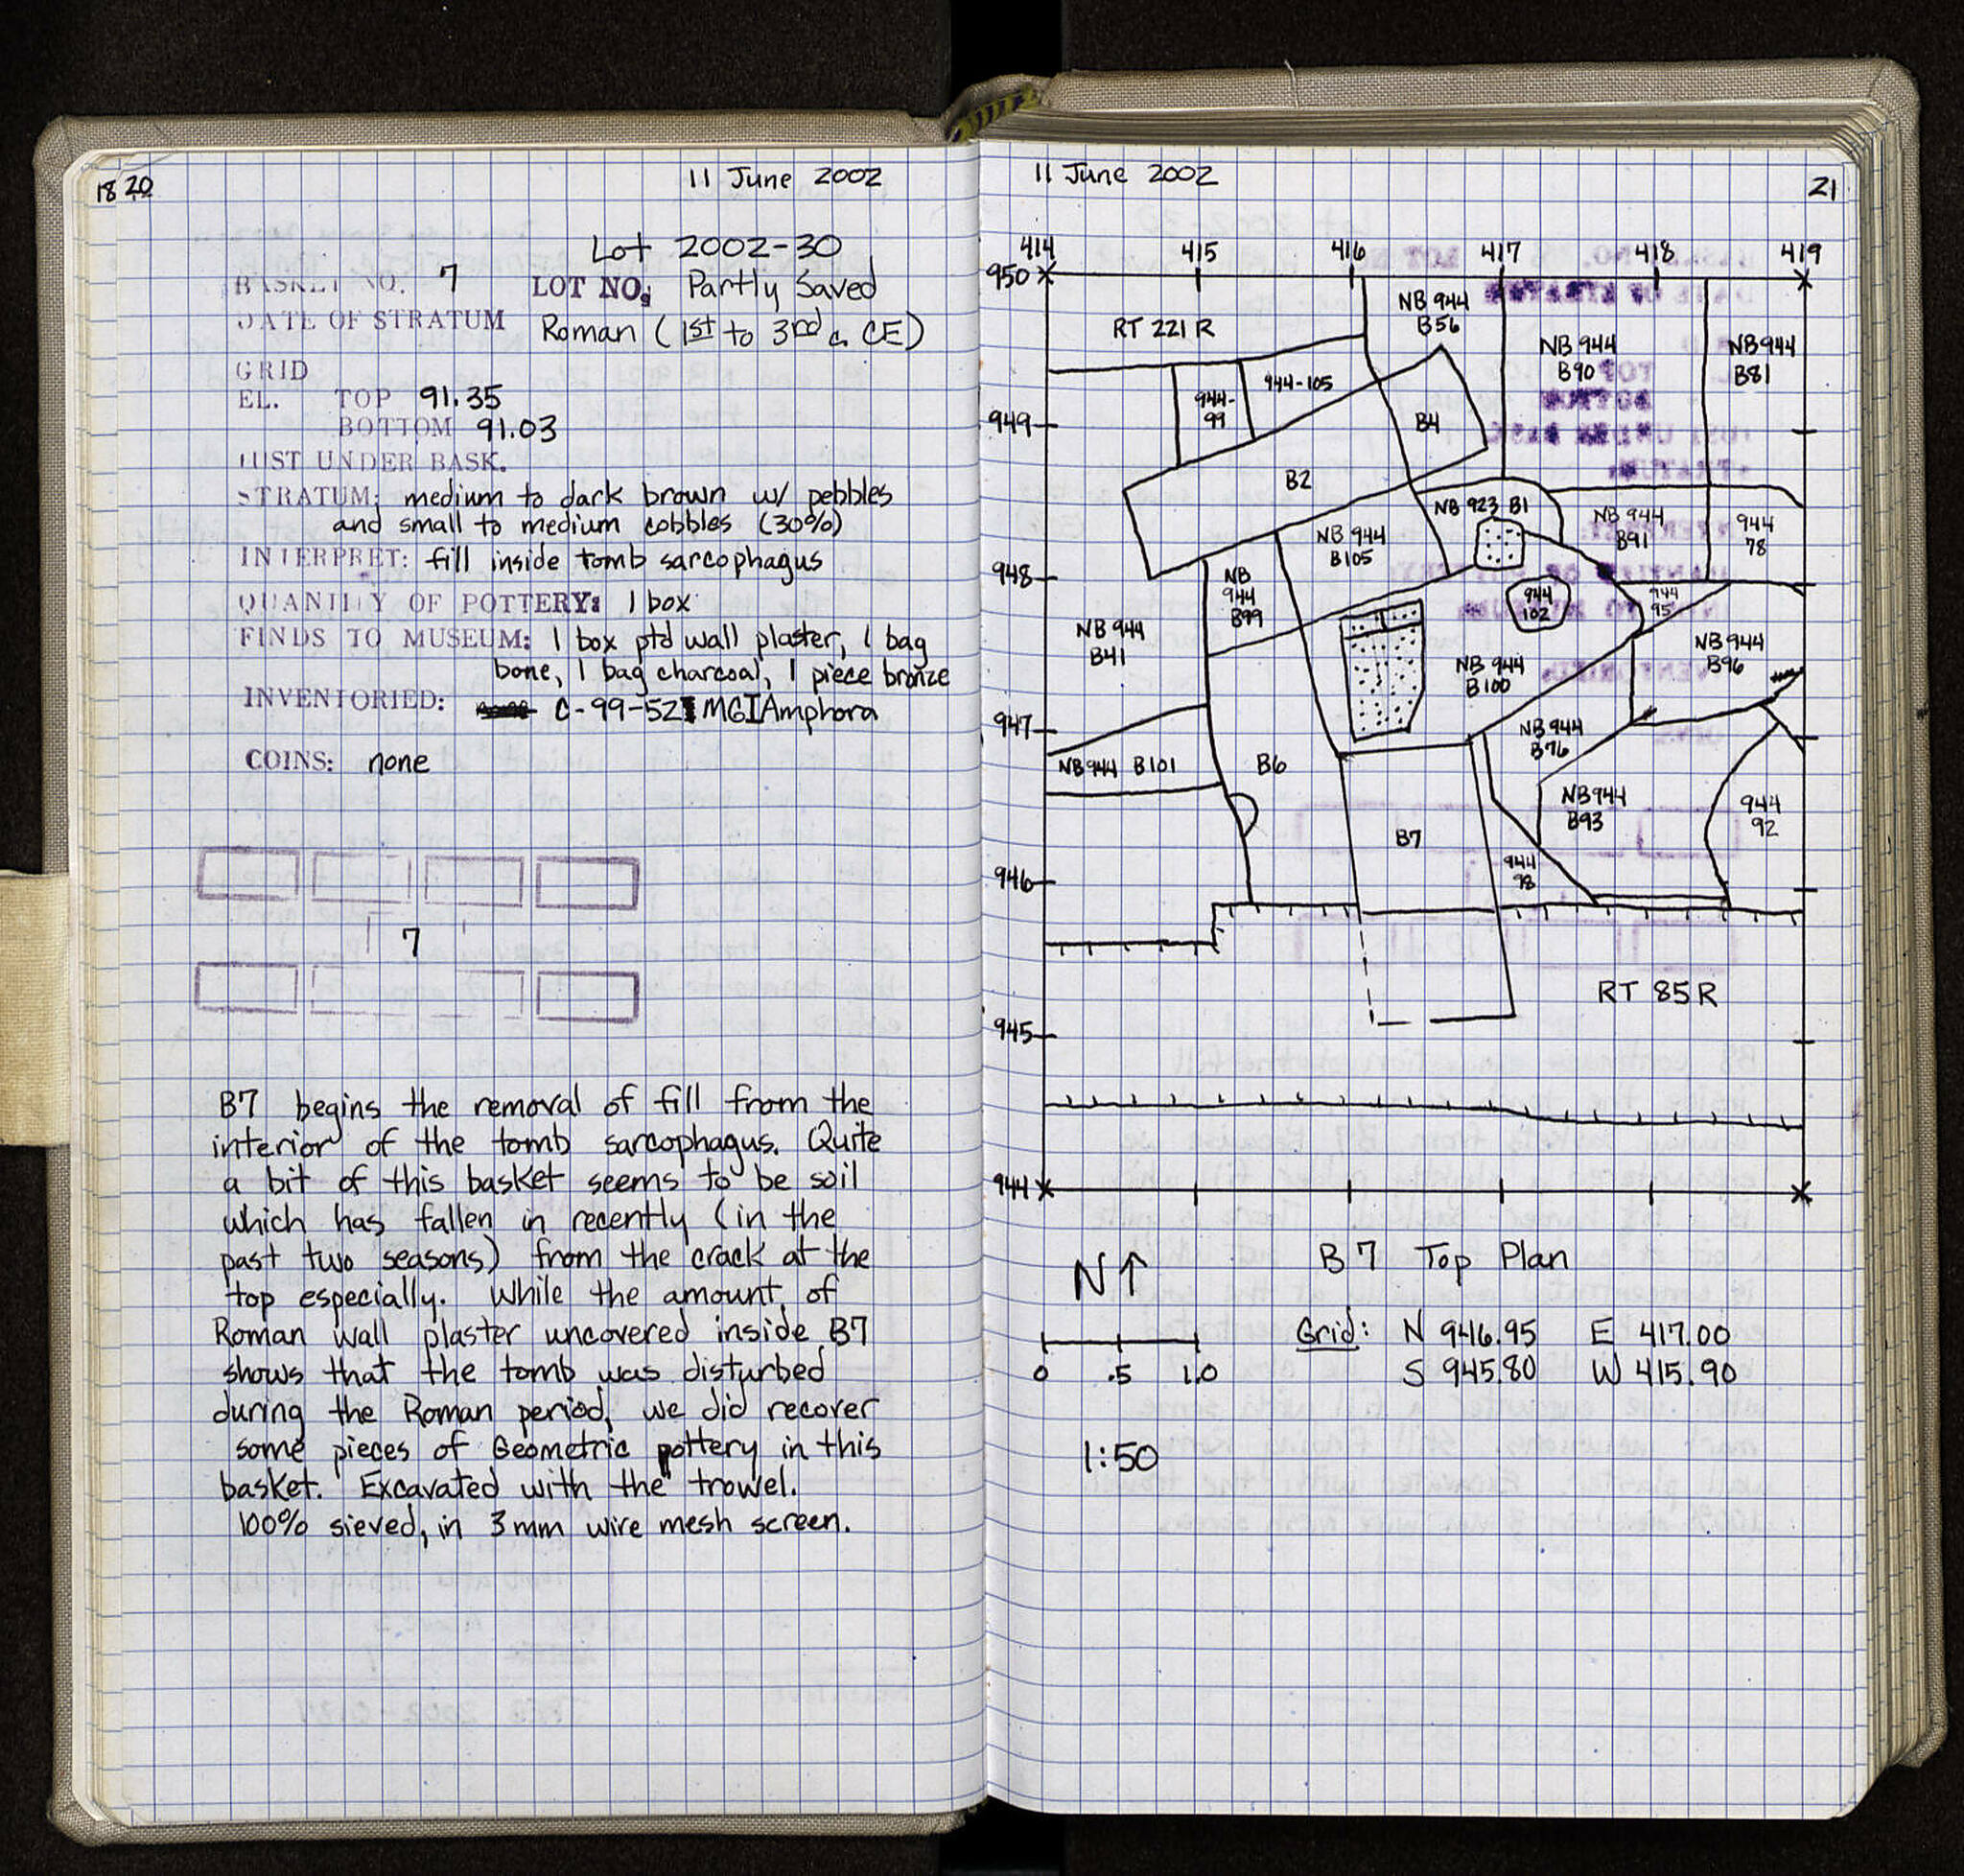 18 20
11 June 2002
Lot 2002-30
BASKET NO. 7 LOT NO: Partly Saved
DATE OF STRATUM Roman (1st to 3rd c. CE)
GRID
EL. TOP 91.35
BOTTOM 91.03
JUST UNDER BASK.
STRATUM: medium to dark brown w/ pebbles
and small to medium cobbles (30%)
INTERPRET: fill inside tomb sarcophagus
QUANTITY OF POTTERY: 1 box
FINDS TO MUSEUM: 1 box ptd wall plaster, 1 bag
bone, 1 bag charcoal, 1 piece bronze
INVENTORIED: C-99-52 MGI Amphora
COINS: none
7
B7 begins the removal of fill from the
interior of the tomb sarcophagus. Quite
a bit of this basket seems to be soil
which has fallen in recently (in the
past two seasons) from the crack at the
top especially. While the amount of
Roman wall plaster uncovered inside B7
shows that the tomb was disturbed
during the Roman period, we did recover
some pieces of Geometric pottery in this
basket. Excavated with the trowel.
100% sieved, in 3mm wire mesh screen.
11 June 2002
21
414 415 416 417 418 419
950
RT 221 R
NB 944
B56
NB 944
B90
NB 944
B81
944-
99
944-105
949
B4
B2
NB 923 B1
NB 944
B105
NB 944
B91
944
78
948
NB
944
B99
944
102
944
95
NB 944
B41
NB 944
B100
NB 944
B96
947
NB 944
B76
NB 944 B101
B6
NB 944
B93
944
92
B7
944
98
946
RT 85 R
945
944
N↑
B7 Top Plan
0 .5 1.0
Grid: N 946.95 E 417.00
S 945.80 W 415.90
1:50